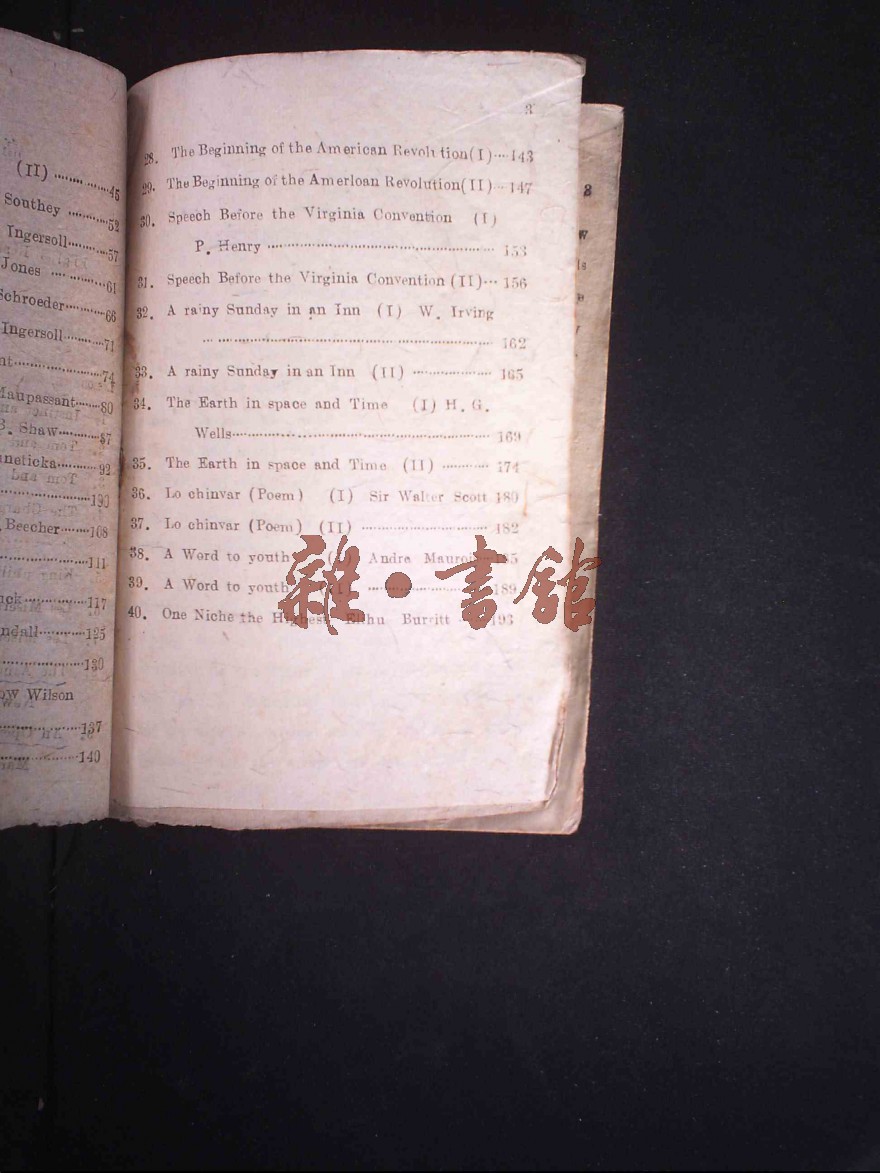 (II) ................45
Southey ............52
Ingersoll..........57
Jones .... ..........61
Schroeder..........66
Ingersoll..........71
74
Maupassant.......80
B. Shaw...........87
92
190
Beecher........108
111
117
125
130
Wilson
137
140
3
28. The Beginning of the American Revolution(I)....143
29. The Beginning of the Amerloan Revolution(II)...147
30. Speech Before the Virginia Convention (I)
P. Henry ........................................ 153
31. Speech Before the Virginia Convention (II)... 156
32. A rainy Sunday in an Inn (I) W. Irving
........................................ 162
33. A rainy Sunday in an Inn (II) ................ 165
34. The Earth in space and Time (I) H. G.
Wells........................................ 169
35. The Earth in space and Time (II) ........... 174
36. Lo chinvar (Poem) (I) Sir Walter Scott 180
37. Lo chinvar (Poem) (II) ........................ 182
38. A Word to youth Andre
39. A Word to youth ................ 189
40. One Niche the Highest Elihu Burritt .... 193
雜·書館